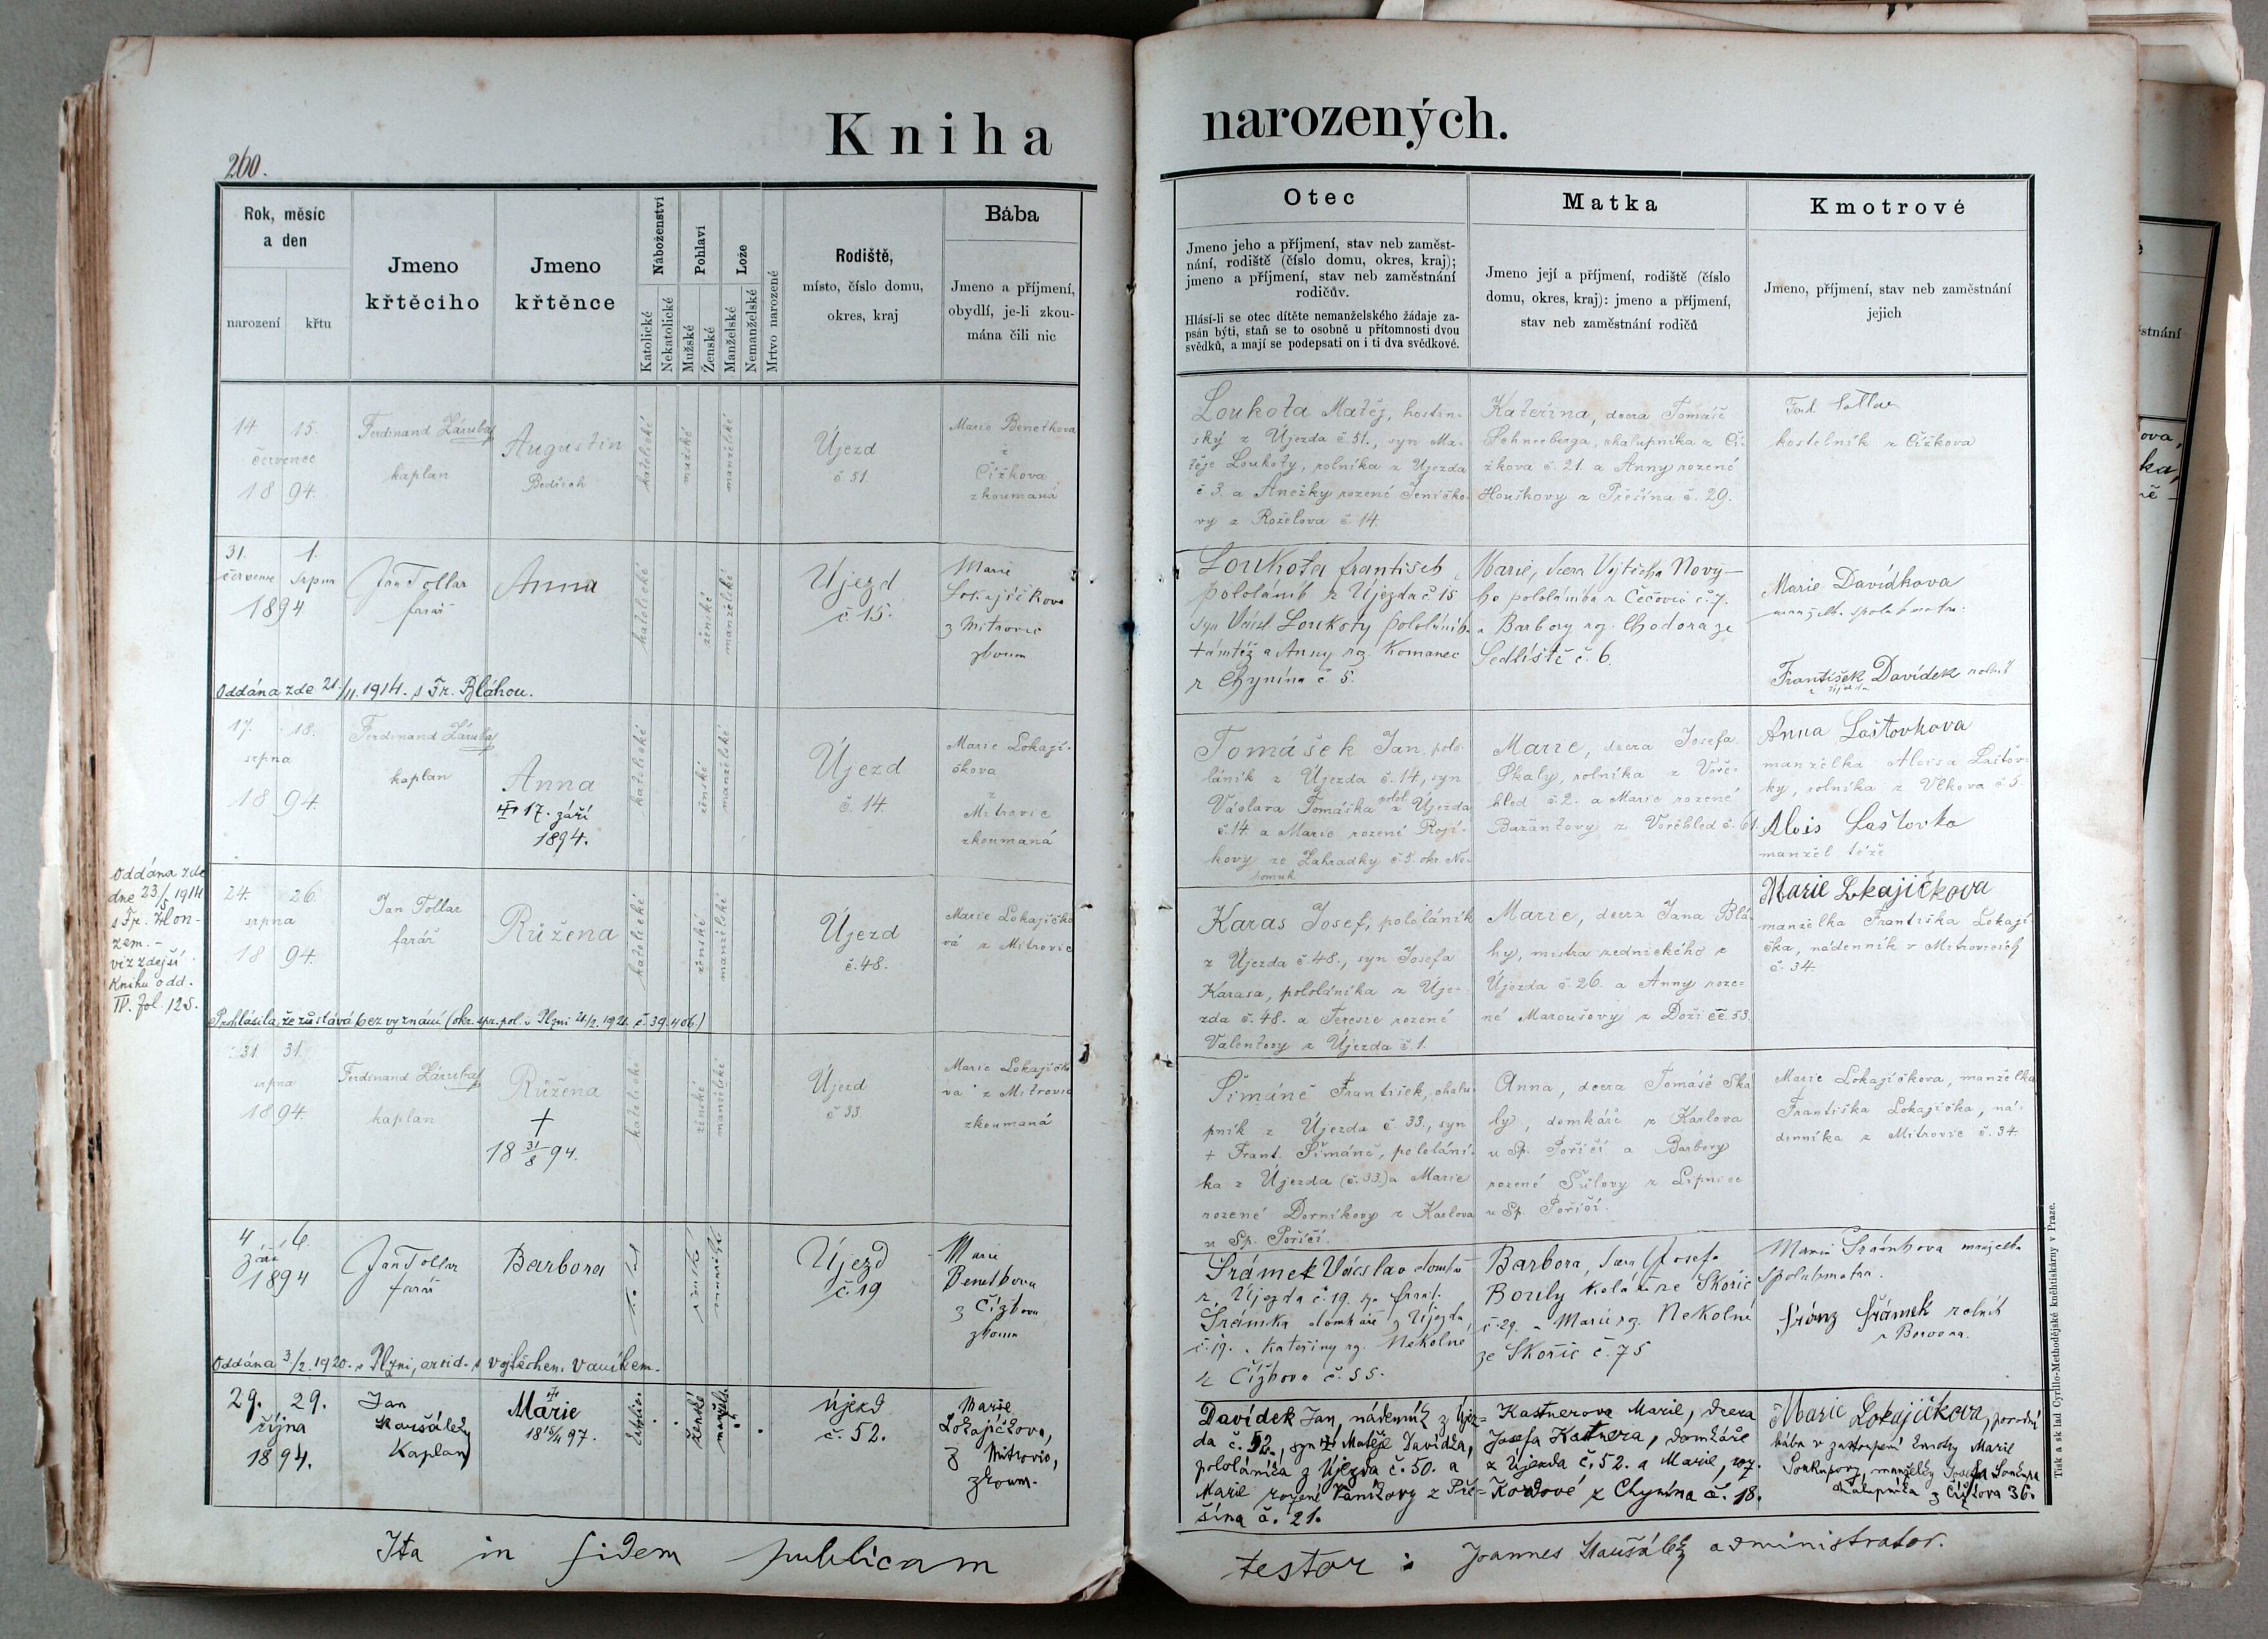 Kniha narozených.
260.
Rok, měsíc
a den
narození
křtu
Jmeno
křtěcího
Jmeno
křtěnce
Náboženství
Katolické
Nekatolické
Pohlaví
Mužské
Ženské
Lože
Manželské
Nemanželské
Mrtvo narozené
Rodiště,
místo, číslo domu,
okres, kraj
Bába
Jmeno a příjmení,
obydlí, je-li zkou-
mána čili nic
Otec
Jmeno jeho a příjmení, stav neb zaměst-
nání, rodiště (číslo domu, okres, kraj);
jmeno a příjmení, stav neb zaměstnání
rodičův.
Hlásí-li se otec dítěte nemanželského žádaje za-
psán býti, staň se to osobně u přítomnosti dvou
svědků, a mají se podepsati on i ti dva svědkové.
Matka
Jmeno její a příjmení, rodiště (číslo
domu, okres, kraj): jmeno a příjmení,
stav neb zaměstnání rodičů
Kmotrové
Jmeno, příjmení, stav neb zaměstnání
jejich
14 15.
červenec
18 94.
Ferdinand Záruba
kaplan
Augustin
Bedřich
katolické
mužské
manželské
Újezd
č. 51.
Marie Benetkova
z
Čížkova
zkoumaná
Loukota Matěj, hostin-
ský z Újezda č. 51., syn Ma-
těje Loukoty, rolníka z Újezda
č. 3. a Anežky rozené Jeníčko-
vy z Roželova č. 14.
Kateřina, dcera Tomáše
Schneeberga, chalupníka z Čí-
žkova č. 21. a Anny rozené
Houškovy z Přešína č. 29.
kostelník z Čížkova
31. 1.
července srpna
1894
Jan Tollar
farář
Anna
katolické
ženské
manželské
Újezd
č. 15.
Marie
Lokajíčkova
z Mitrovic
zkoum
Loukota František
pololáník z Újezda č. 15
syn Václ. Loukoty pololáníka
tamtéž a Anny roz. Komanec
z Chynína č 5.
Marie, dcera Vojtěcha Nový-
ho pololáníka z Čečovic č. 7.
a Barbory rz. Chodora ze
Sedliště č. 6.
Marie Davídkova
František Davídek rolník
z Újezda
Oddána zde 21./II. 1914. s Fr. Bláhou.
17. 18.
srpna
18 94.
Ferdinand Záruba
kaplan
Anna
17. září
1894.
katolické
ženské
manželské
Újezd
č. 14
Marie Lokají-
čkova
z
Mitrovic
zkoumaná
Tomášek Jan, polo-
láník z Újezda č. 14, syn
Václava Tomáška polol. z Újezda
č. 14 a Marie rozené Rojí-
kovy ze Zahrádky č. 5. okr. Ne-
pomuk
Marie, dcera Josefa
Skaly, rolníka z Voře-
hled č. 2. a Marie rozené
Bažantovy z Vořehled č. 61
Anna Laštovkova
manželka Aloisa Laštov-
ky, rolníka z Vlkova č 5.
Alois Laštovka
manžel téže
Oddána zde
dne 23/5 1914
s Fr. Hon-
zem. -
viz zdejší
Knihu odd.
IV. fol. 125.
24. 26.
srpna
18 94.
Jan Tollar
farář
Růžena
katolické
ženské
manželské
Újezd
č. 48.
Marie Lokajíčko
vá z Mitrovic
Karas Josef, pololáník
z Újezda č. 48., syn Josefa
Karasa, pololáníka z Úje-
zda č. 48. a Terezie rozené
Valentovy z Újezda č. 1.
Marie, dcera Jana Blá-
hy, mistra zednického z
Újezda č. 26. a Anny roze-
né Maroušovy z Doži č. 53.
Marie Lokajíčkova
manželka Františka Lokají-
čka, nádenník v Mitrovicích
č. 34.
Prohlásila, že zůstává bez vyznání (okr. spr. pol. v Plzni 21/2. 1921. č. 39.406.)
31. 31.
srpna
18 94.
Ferdinand Záruba
kaplan
Růžena
+
18 31/8 94.
katolické
ženské
manželské
Újezd
č 33
Marie Lokajíčko
va z Mitrovic
zkoumaná
Šimáně František, chalu-
pník z Újezda č 33., syn
+ Frant. Šimáně, pololání-
ka z Újezda (č. 33.) a Marie
rozené Dorníkovy z Karlova
u Sp. Poříčí.
Anna, dcera Tomáše Ska
ly, domkáře z Karlova
u Sp. Poříčí a Barbory
rozené Šůlovy z Lipnice
u Sp. Poříčí.
Marie Lokajíčkova, manželka
Františka Lokajíčka, ná-
denníka z Mitrovic č. 34.
4 6.
září
1894
Jan Tollar
farář
Barbora
ženské
manželské
Újezd
č. 19
Marie
Benetkova
z Čížkova
zkoum
Šrámek Václav domkář
z Újezda č. 19. syn Frant.
Šrámka domkáře z Újezda
č. 19. a Kateřiny rz. Nekolné
z Čížkova č. 55.
Barbora, dcera Josefa
Bouly koláře ze Skořic
č. 29. a Marie rz. Nekolná
ze Skořic č. 75
Marie Šrámkova manželka
spolukmotra.
Fránz Šrámek rolník
Oddána 3/2. 1920. v Plzni, arcid. s Vojtěchem Vaníkem.
29. 29.
října
1894.
Jan
Maršálek
kaplan
Marie
18 15/4 97.
ženské
manžels.
Újezd
č. 52.
Marie
Lokajíčkova,
z Mitrovic,
zkoum.
Davídek Jan, nádenník z Újez-
da č. 52., syn Matěje Davídka,
pololáníka z Újezda č. 50. a
Marie rozené Vaníkovy z Pře-
šína č. 21.
Kastnerova Marie, dcera
Josefa Kastnera, domkáře
z Újezda č. 52. a Marie, roz.
Kordové z Chynína č. 18.
Marie Lokajíčkova, porodní
bába v zastoupení kmotry Marie
Soukupovy manželky Josefa Soukupa
chalupníka z Čížkova 36.
Ita in fidem publicam testor : Joannes Maršálek administrator.
Tisk a sklad Cyrillo-Methodějské knihtiskárny v Praze.